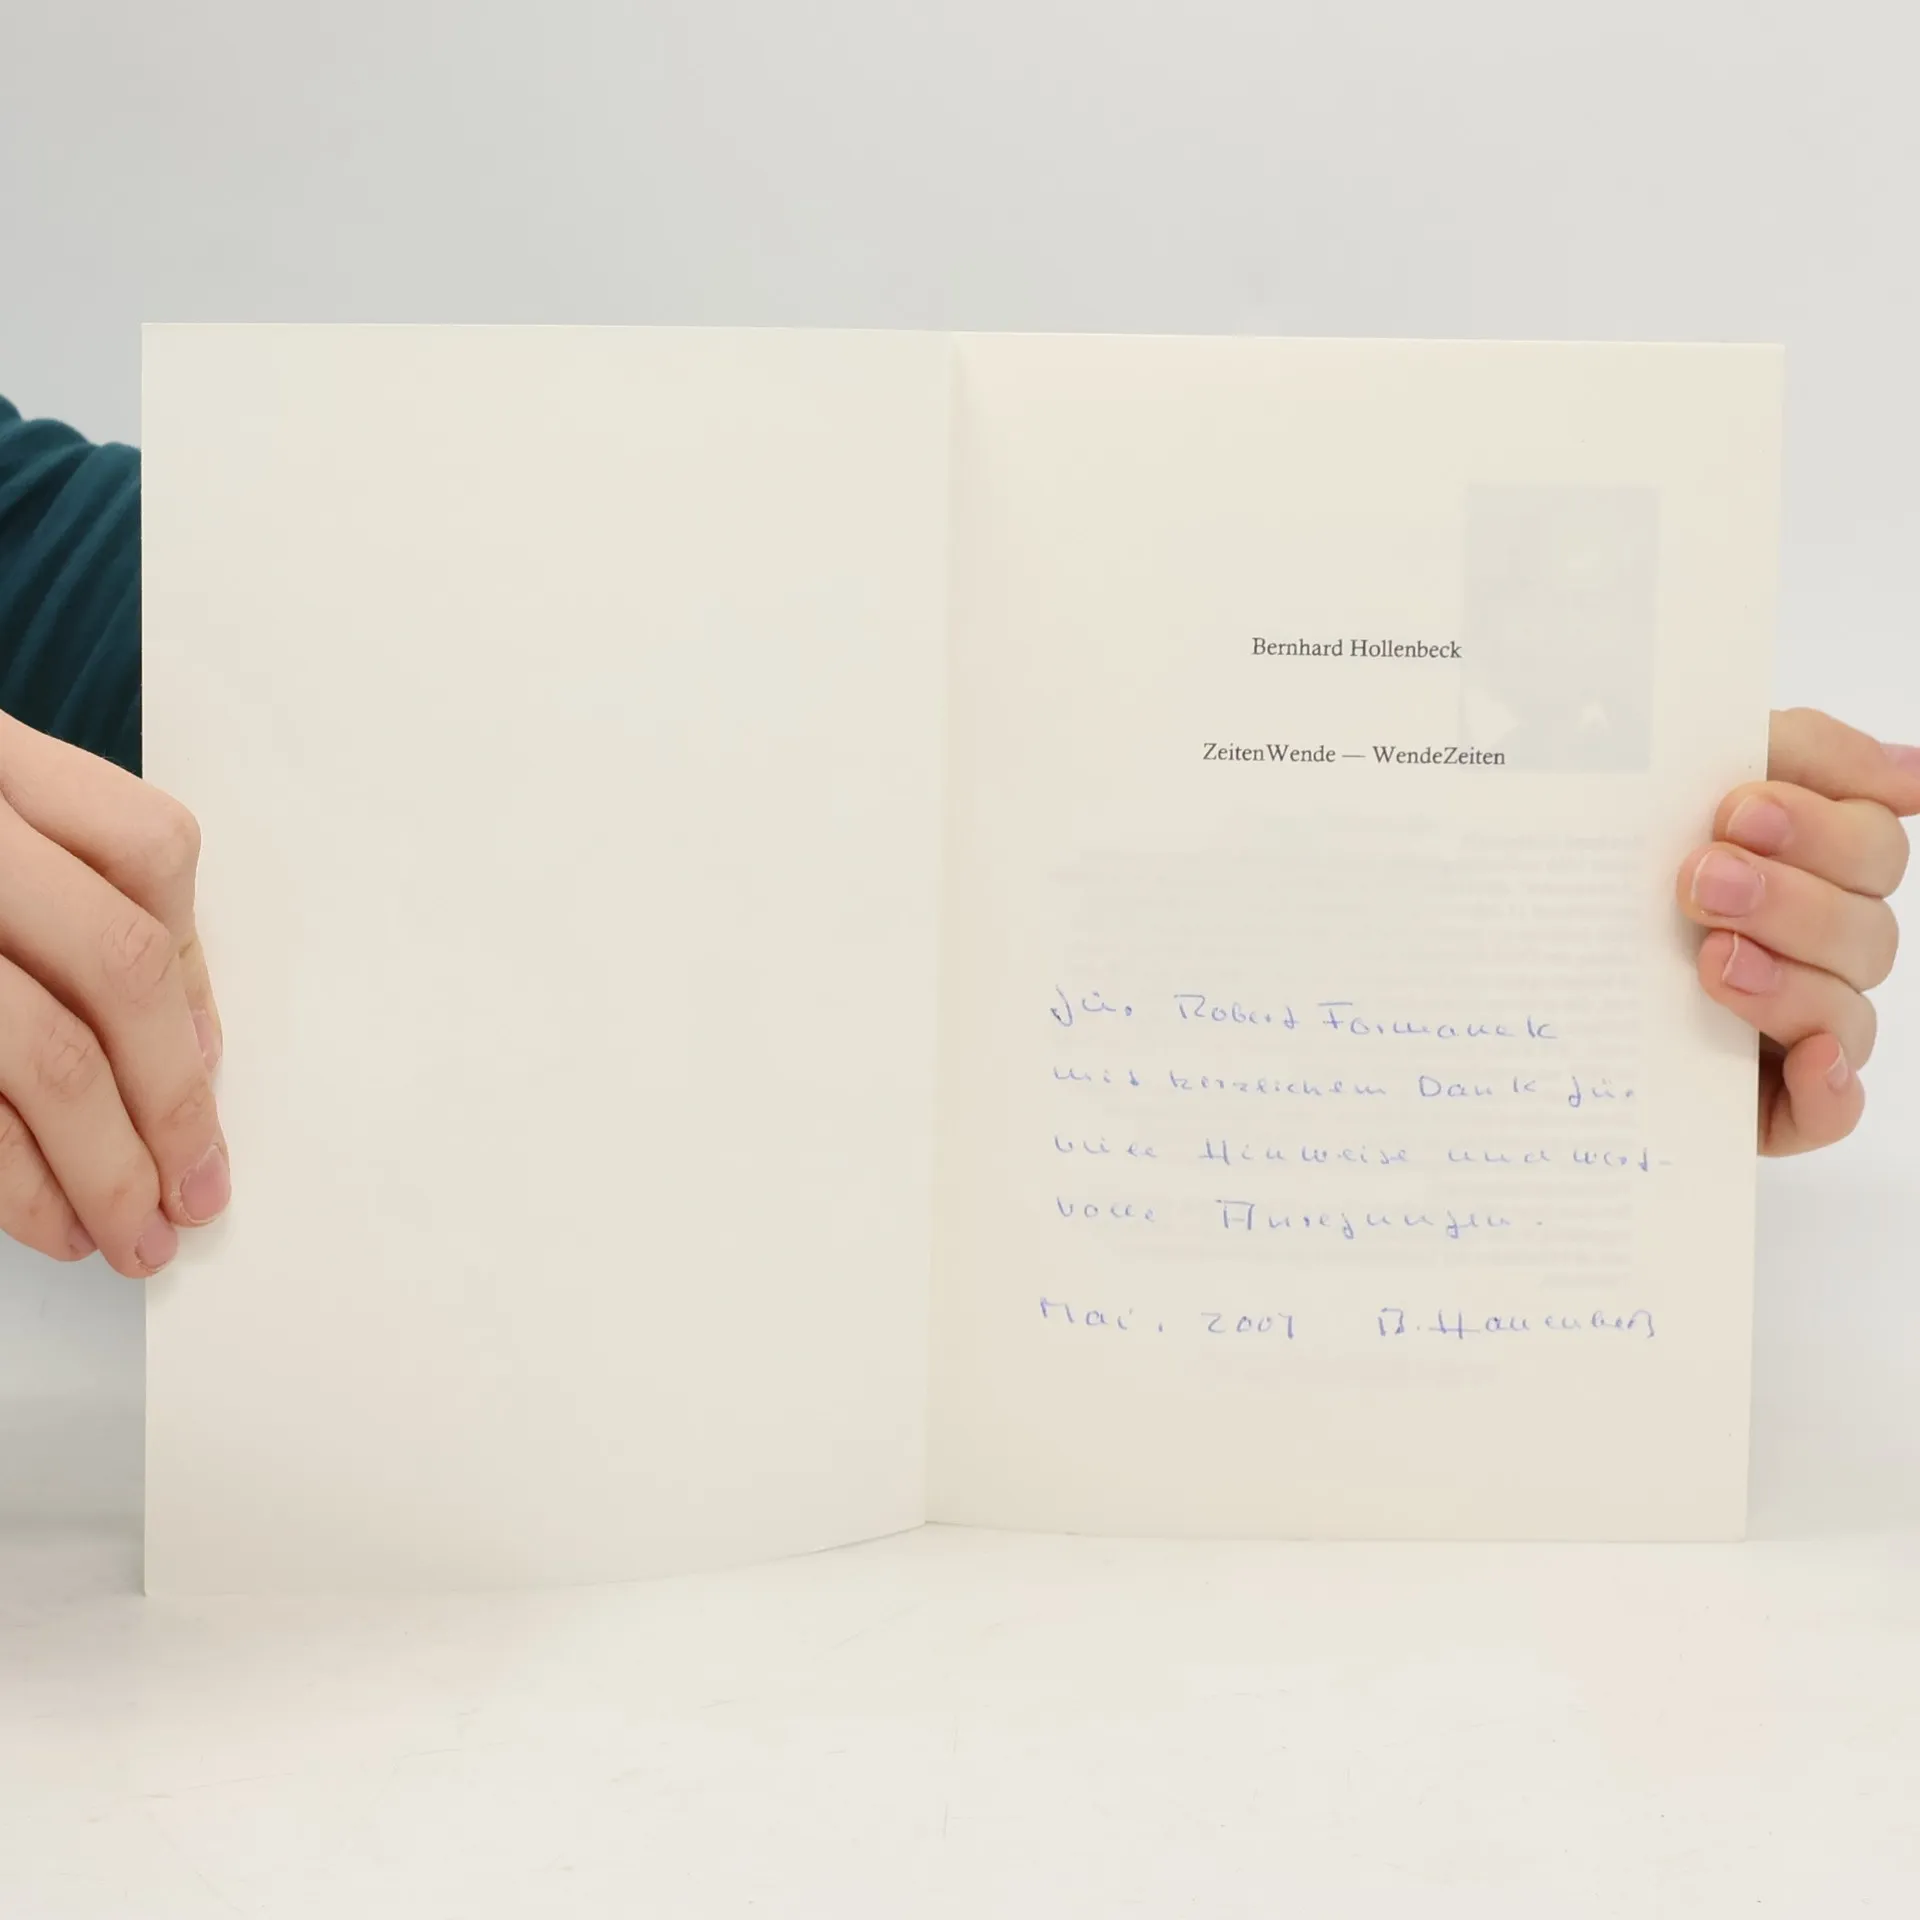 Bernhard Hollenbeck
ZeitenWende — WendeZeiten
für Robert Formanek
mit herzlichem Dank für
viele Hinweise und wert-
volle Anregungen.
Mai, 2007 B. Hollenbeck